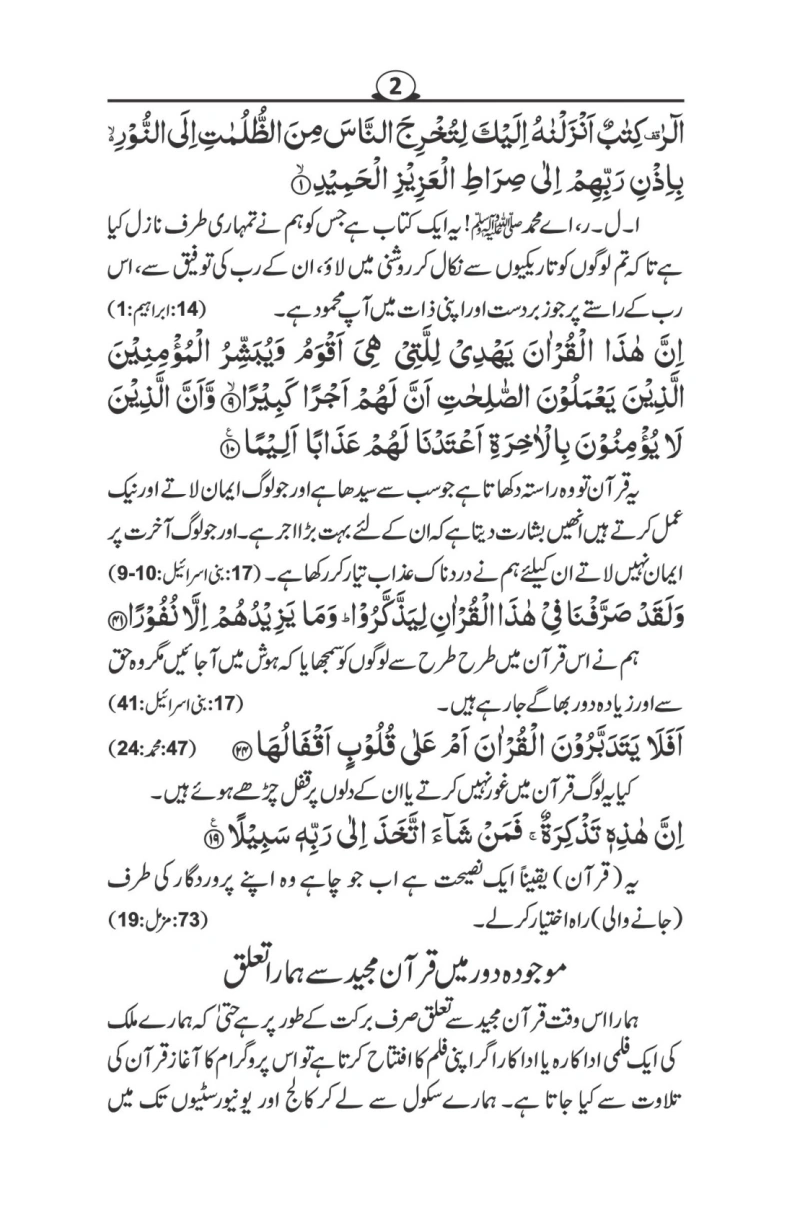 2
الٓرٰ ۟ كِتٰبٌ اَنْزَلْنٰهُ اِلَيْكَ لِتُخْرِجَ النَّاسَ مِنَ الظُّلُمٰتِ اِلَى النُّوْرِ ۙ
بِاِذْنِ رَبِّهِمْ اِلٰى صِرَاطِ الْعَزِيْزِ الْحَمِيْدِ ۙ﴿۱﴾
ا۔ل۔ر، اے محمد ﷺ! یہ ایک کتاب ہے جس کو ہم نے تمہاری طرف نازل کیا
ہے تا کہ تم لوگوں کو تاریکیوں سے نکال کر روشنی میں لاؤ، ان کے رب کی توفیق سے، اس
رب کے راستے پر جو زبردست اور اپنی ذات میں آپ محمود ہے۔ (14:ابراہیم:1)
اِنَّ هٰذَا الْقُرْاٰنَ يَهْدِىْ لِلَّتِىْ هِىَ اَقْوَمُ وَيُبَشِّرُ الْمُؤْمِنِيْنَ
الَّذِيْنَ يَعْمَلُوْنَ الصّٰلِحٰتِ اَنَّ لَهُمْ اَجْرًا كَبِيْرًا ۙ﴿۹﴾ وَّاَنَّ الَّذِيْنَ
لَا يُؤْمِنُوْنَ بِالْاٰخِرَةِ اَعْتَدْنَا لَهُمْ عَذَابًا اَلِيْمًا ﴿۱۰﴾ؑ
یہ قرآن تو وہ راستہ دکھاتا ہے جو سب سے سیدھا ہے اور جو لوگ ایمان لاتے اور نیک
عمل کرتے ہیں انھیں بشارت دیتا ہے کہ ان کے لئے بہت بڑا اجر ہے۔ اور جو لوگ آخرت پر
ایمان نہیں لاتے ان کیلئے ہم نے دردناک عذاب تیار کر رکھا ہے۔ (17:بنی اسرائیل:10-9)
وَلَقَدْ صَرَّفْنَا فِىْ هٰذَا الْقُرْاٰنِ لِيَذَّكَّرُوْا ؕ وَمَا يَزِيْدُهُمْ اِلَّا نُفُوْرًا ﴿۴۱﴾
ہم نے اس قرآن میں طرح طرح سے لوگوں کو سمجھایا کہ ہوش میں آ جائیں مگر وہ حق
سے اور زیادہ دور بھاگے جا رہے ہیں۔ (17:بنی اسرائیل:41)
اَفَلَا يَتَدَبَّرُوْنَ الْقُرْاٰنَ اَمْ عَلٰى قُلُوْبٍ اَقْفَالُهَا ﴿۲۴﴾ (47:محمد:24)
کیا یہ لوگ قرآن میں غور نہیں کرتے یا ان کے دلوں پر قفل چڑھے ہوئے ہیں۔
اِنَّ هٰذِهٖ تَذْكِرَةٌ ۚ فَمَنْ شَآءَ اتَّخَذَ اِلٰى رَبِّهٖ سَبِيْلًا ﴿۱۹﴾ؑ
یہ (قرآن) یقیناً ایک نصیحت ہے اب جو چاہے وہ اپنے پروردگار کی طرف
(جانے والی) راہ اختیار کر لے۔ (73:مزمل:19)
موجودہ دور میں قرآن مجید سے ہمارا تعلق
ہمارا اس وقت قرآن مجید سے تعلق صرف برکت کے طور پر ہے حتیٰ کہ ہمارے ملک
کی ایک فلمی اداکارہ یا اداکار اگر اپنی فلم کا افتتاح کرتا ہے تو اس پروگرام کا آغاز قرآن کی
تلاوت سے کیا جاتا ہے۔ ہمارے سکول سے لے کر کالج اور یونیورسٹیوں تک میں